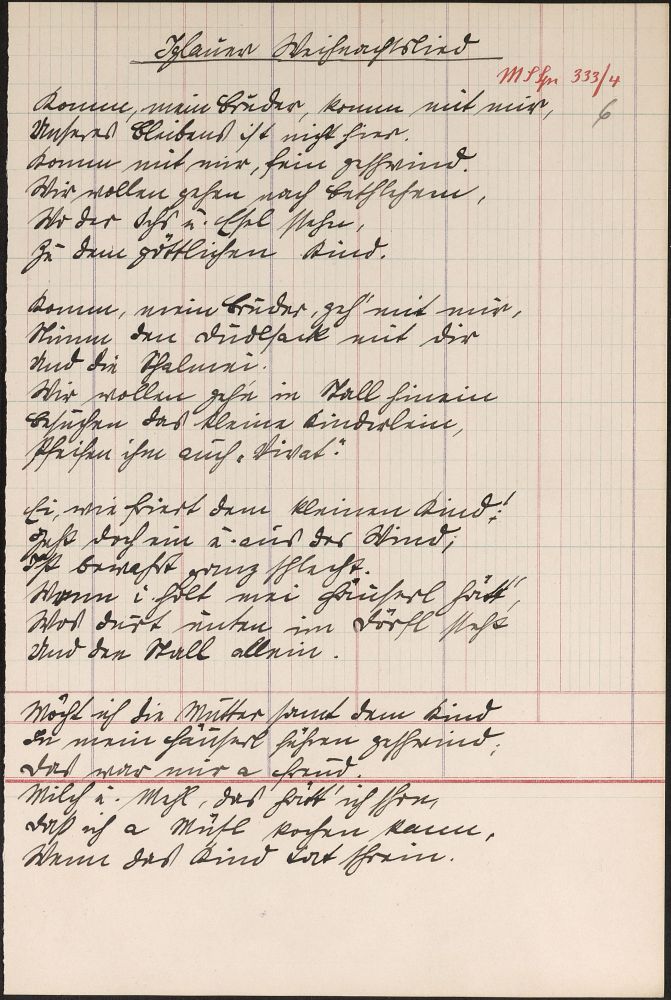 Iglauer Weihnachtslied
MS Spr 333/4
6
Komm, mein Bruder, komm mit mir,
Unseres Bleibens ist nicht hier.
Komm mit mir, fein geschwind.
Wir wollen gehen nach Bethlehem,
Wo der Ochs u. Esel stehn,
Zu dem göttlichen Kind.
Komm, mein Bruder, geh' mit mir,
Nimm den Dudlsack mit dir
Und die Schalmei.
Wir wollen gehn in Stall hinein
Besuchen das kleine Kinderlein,
Pfeifen ihm auch „Vivat".
Ei, wie friert dem kleinen Kind!
Geht doch ein u. aus der Wind;
Ist bewahrt ganz schlecht.
Wenn i holt mei Häuserl hätt',
Wos durt unten im Dörfl steht
Und den Stall allein.
Möcht ich die Mutter samt dem Kind
In mein Häuserl führen geschwind;
Das war mir a Freud.
Milch u. Mehl, das hätt' ich schon,
Daß ich a Müsl kochen kann,
Wenn das Kind tät schrein.